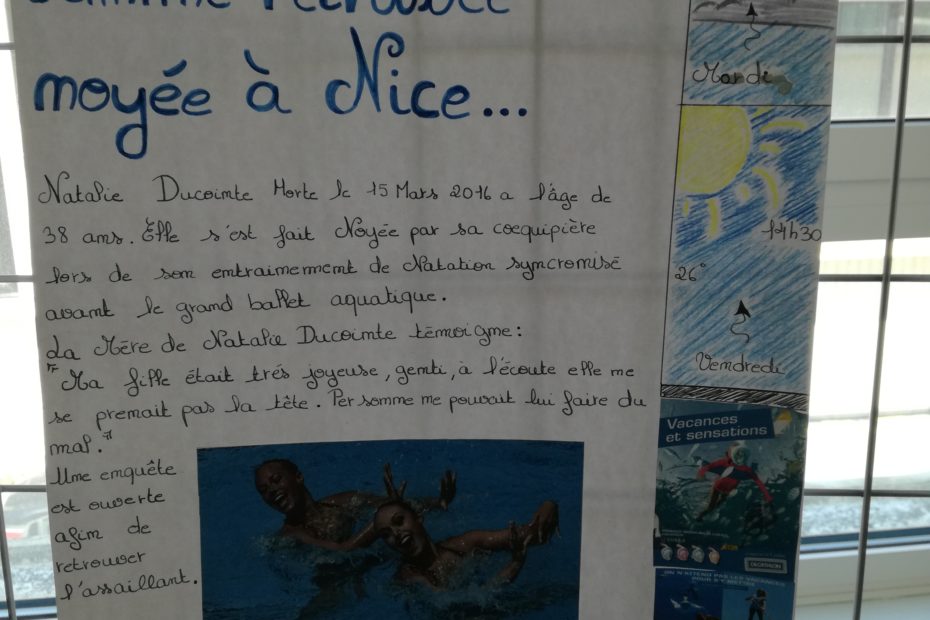 moyée à Nice...
Natalie Ducointe Morte le 15 Mars 2016 a l'âge de
38 ans. Elle s'est fait Noyée par sa coequipière
lors de son entrainement de Natation syncronisé
avant le grand ballet aquatique.
La Mère de Natalie Ducointe témoigne:
"Ma fille était très joyeuse, genti, à l'écoute elle ne
se prenait pas la tête. Personne ne pouvait lui faire du
mal."
Une enquête
est ouverte
afin de
retrouver
l'assaillant.
Mardi
14h30
26°
Vendredi
Vacances
et sensations
DECATHLON
ON N'ATTEND PAS LES VACANCES